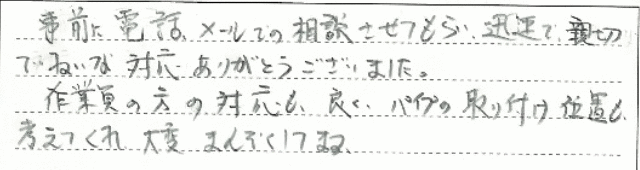 事前に電話、メールでの相談させてもらい、迅速で親切
でねいな対応ありがとうございました。
作業員の方の対応も良く、パイプの取り付け位置も
考えてくれ大変まんぞくしてます。